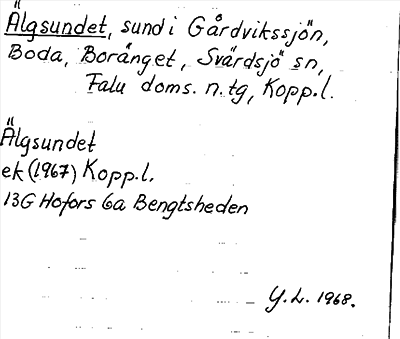 Älgsundet, sund i Gårdvikssjön,
Boda, Borånget, Svärdsjö sn,
Falu doms. n. tg, Kopp. l.
Älgsundet
ek (1967) Kopp. l.
13G Hofors 6a Bengtsheden
Y. L. 1968.